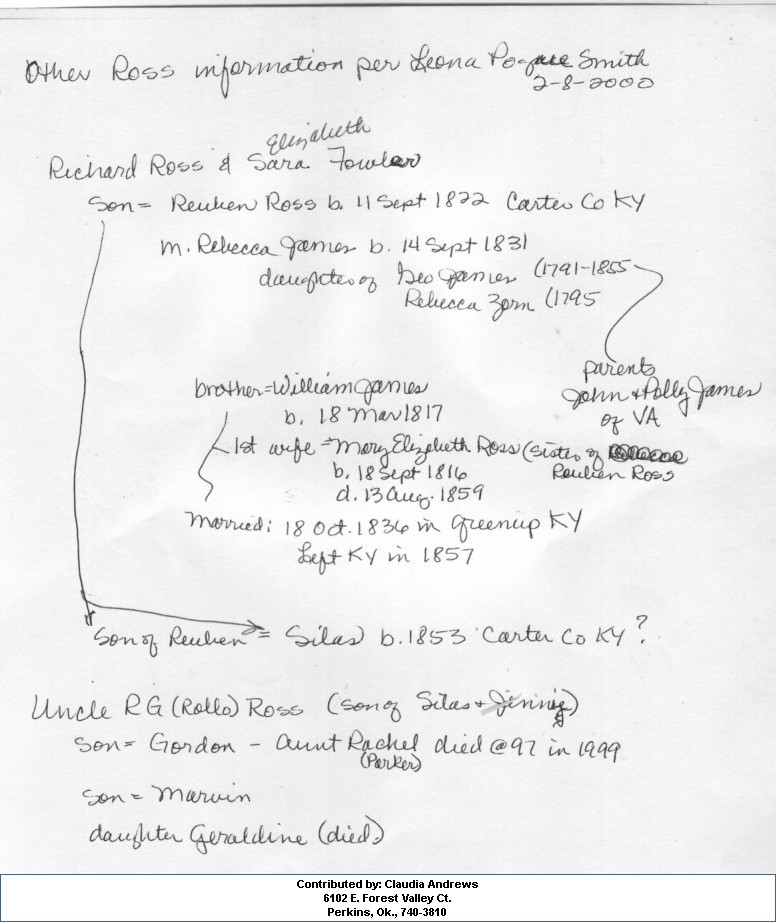 Other Ross information per Leona Pogue Smith
2-8-2000
Elizabeth
Richard Ross & Sara Fowler
Son = Reuben Ross b. 11 Sept 1822 Carter Co KY
m. Rebecca James b. 14 Sept 1831
daughter of Geo James (1791-1855
Rebecca Zorn (1795
parents
John + Polly James
of VA
brother = William James
b. 18 Mar 1817
1st wife = Mary Elizabeth Ross (sister of
Reuben Ross
b. 18 Sept 1816
d. 13 Aug. 1859
Married: 18 Oct. 1836 in Greenup KY
Left KY in 1857
Son of Reuben = Silas b. 1853 Carter Co KY ?
Uncle RG (Rollo) Ross (son of Silas + Jinnie)
son = Gordon - Aunt Rachel died @ 97 in 1999
(Parker)
son = Marvin
daughter Geraldine (died)
Contributed by: Claudia Andrews
6102 E. Forest Valley Ct.
Perkins, Ok., 740-3810